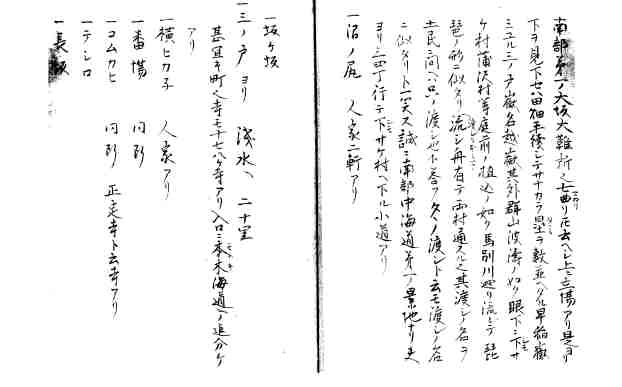 南部第一ノ大坂大難所ニ七曲リ
上ニ立場アリ是ヨリ
下ヲ見下セハ田畑平続シテサナカラ
敷並ヘタル早稲嶽
ミユル三ノ戸嶽名越嶽其外群山波濤ノ如ク眼下ニ下サ
ケ村蒲沢村等庭前ノ植込ノ如ク馬別川廻リ流シテ琵
琶ノ形ニ似タリ流シ舟有テ両村通スル之其渡シノ名ヲ
土民ニ問ヘハ只ノ渡シ也
渡シト云モ渡シノ名
ニ似タリト一笑ス誠ニ南部中海道第一ノ景地ナリ
ヨリ三四丁行テ下サケ村ヘ下ル小道アリ
一沼ノ尻 人家二軒アリ
一坂ケ坂
一三ノ戸ヨリ 浅水ヘ 二十里
甚宜キ町之寺モ十七八ケ寺アリ入口ニ
木海道ノ追分ケ
アリ
一横ヒカ子 人家アリ
一番場 同断
一コムカヒ 同断 正走寺ト云寺アリ
一テシロ
一長坂